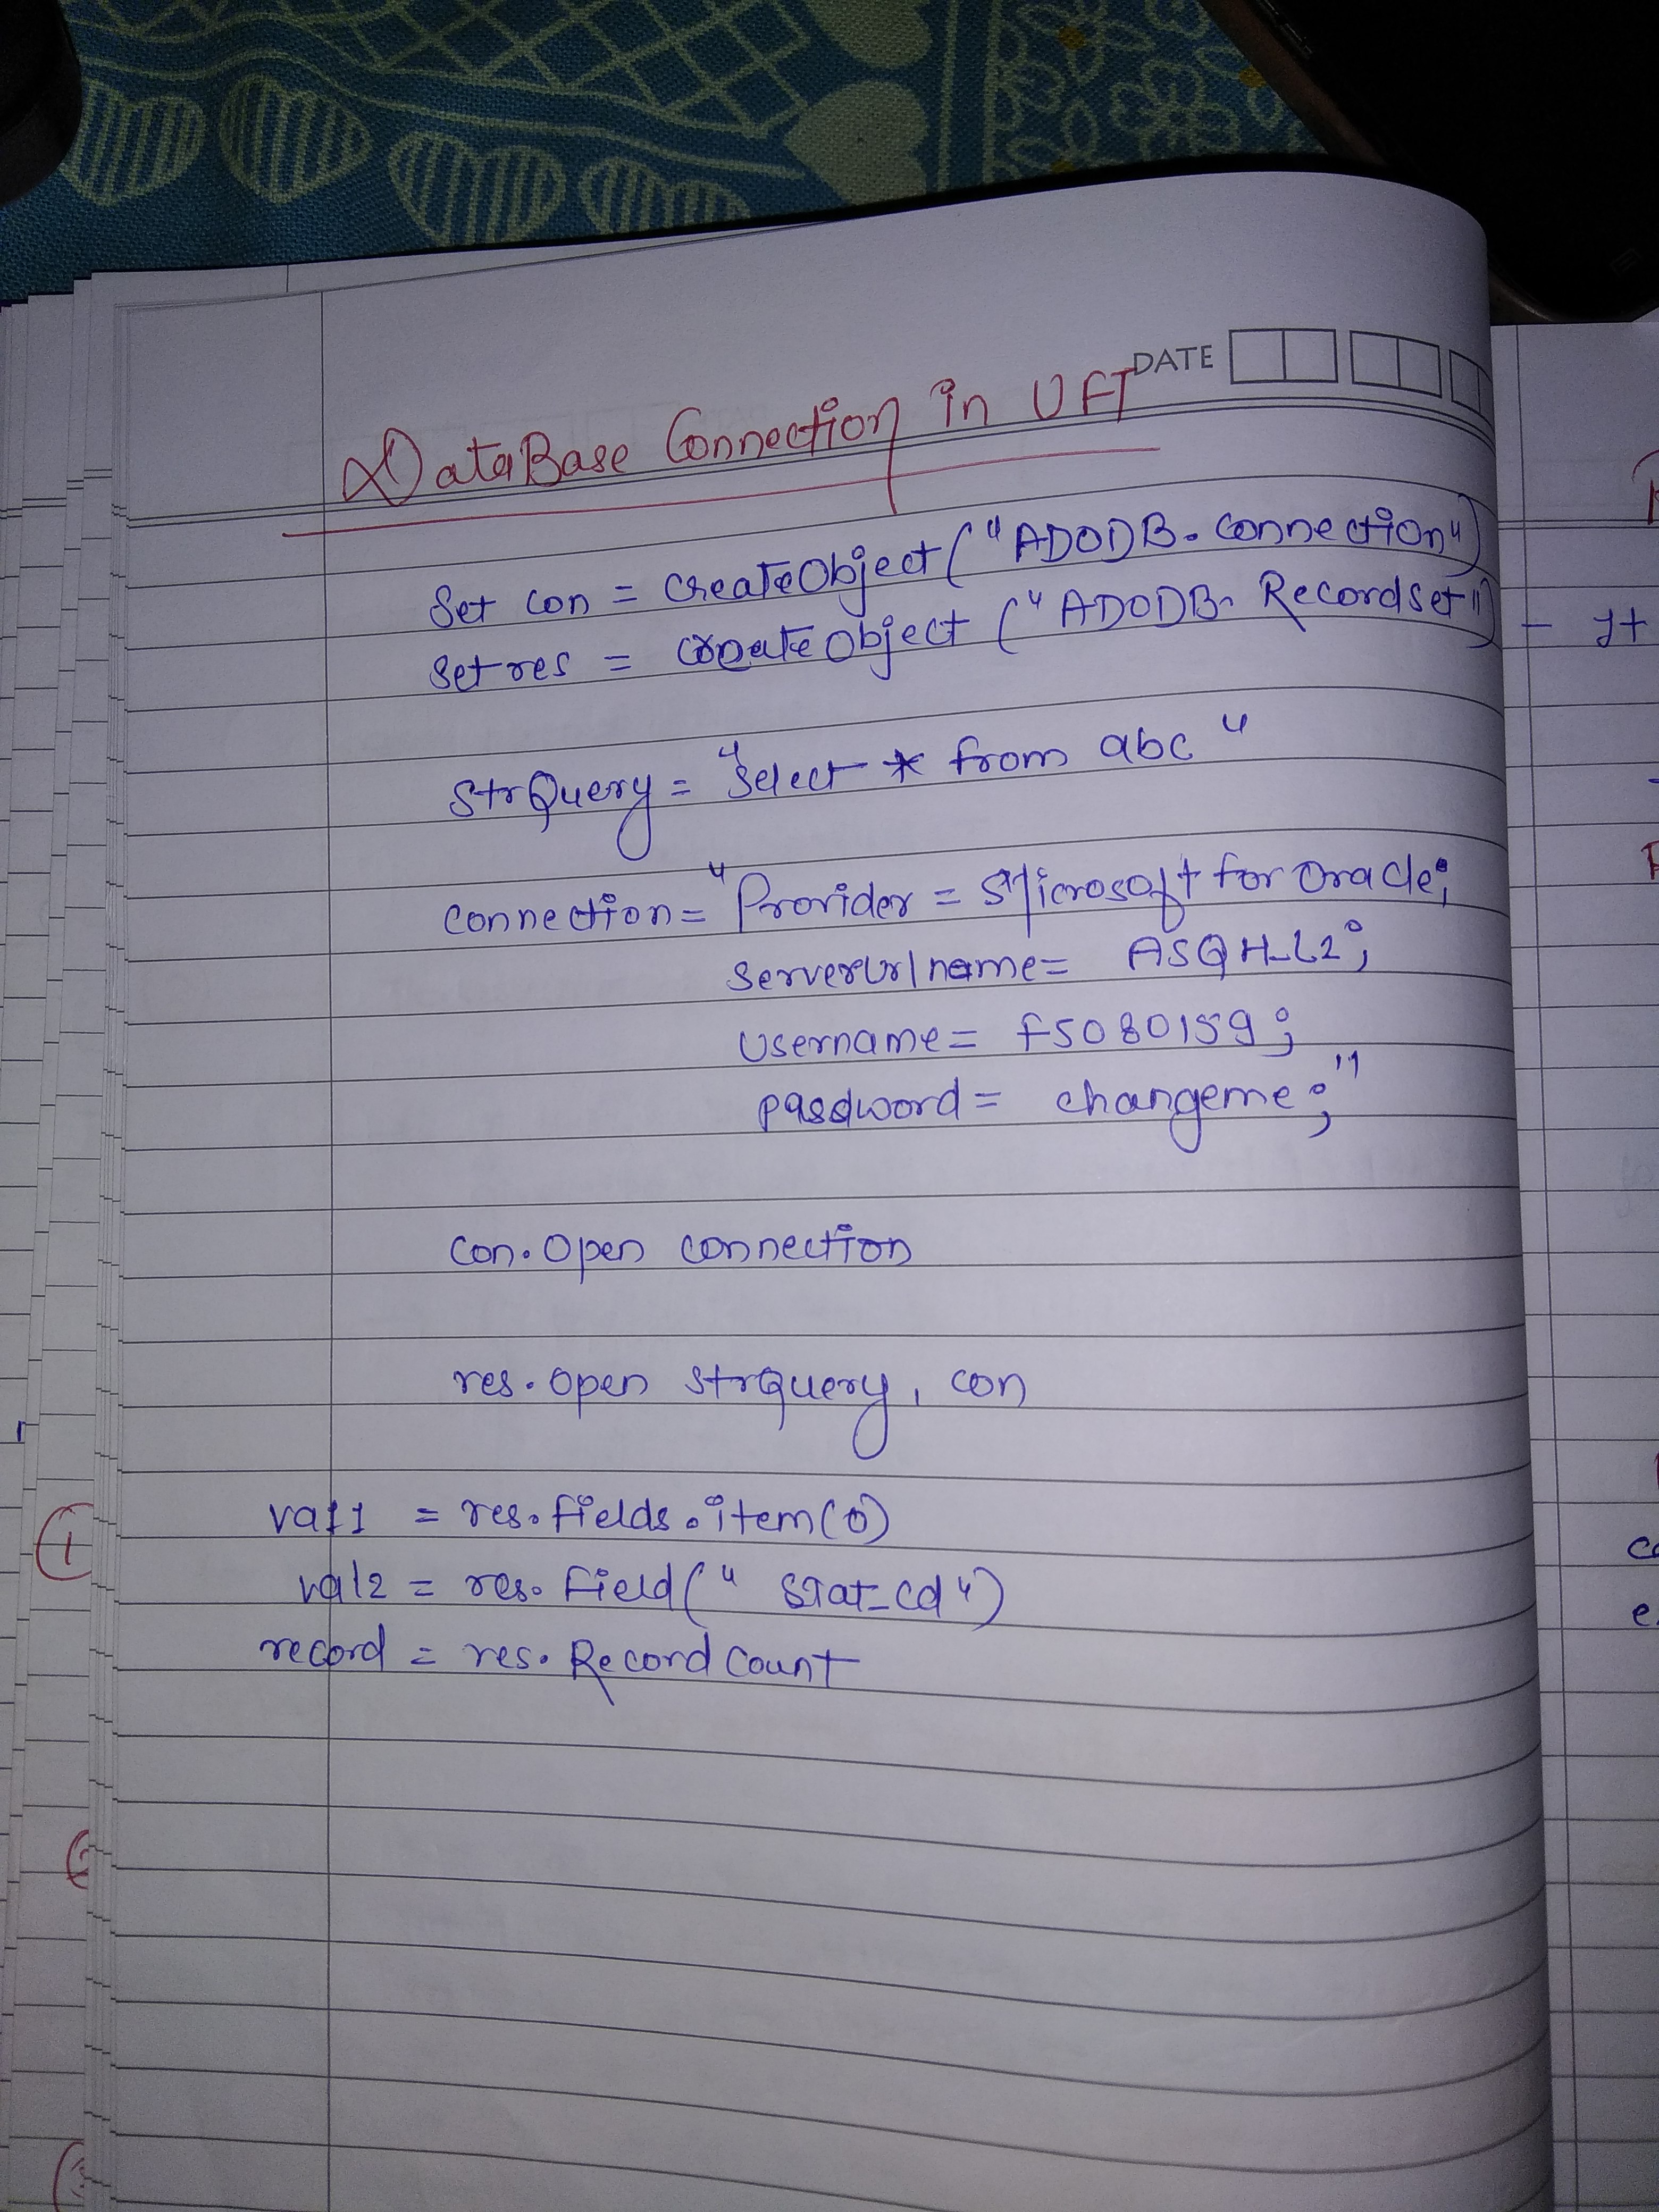 DATE
DataBase Connection in UFT
Set con = CreateObject("ADODB.connection")
Set res = createobject ("ADODB. Recordset")
- It
StrQuery = "Select * from abc"
connection = "Provider = Microsoft for Oracle;
serverUrl name = ASQH_L2;
username = f5080159;
password = changeme;"
con.open connection
res.open strQuery, con
val1 = res.fields.item(0)
1
val2 = res.Field("Stat_cd")
record = res.RecordCount
2
3